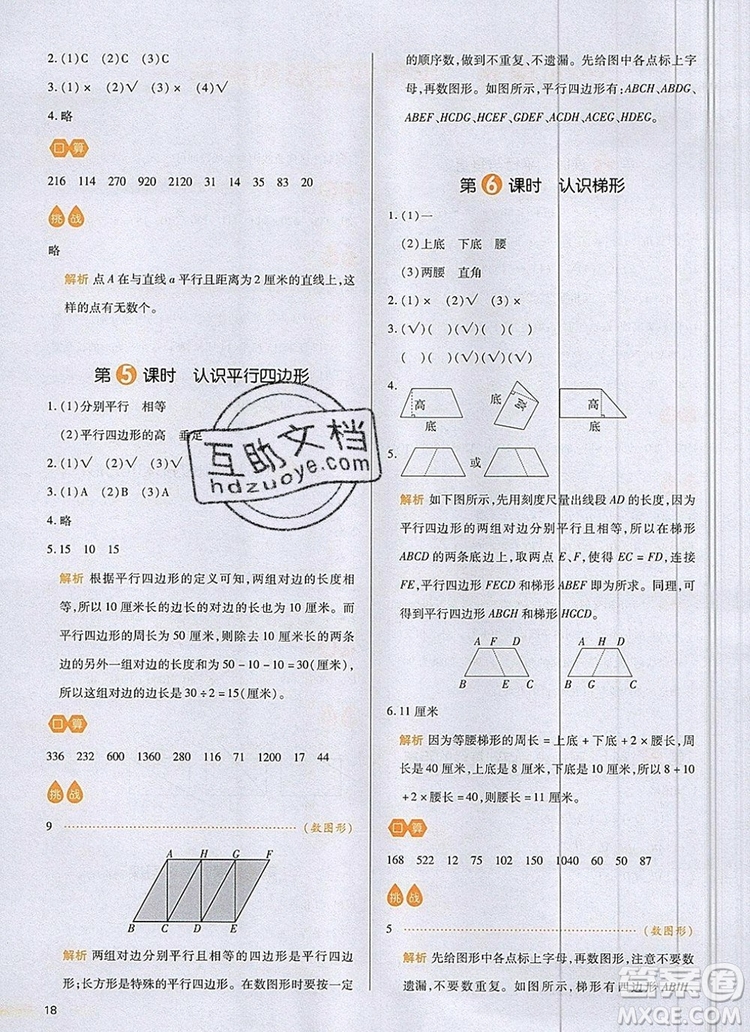 2.(1)C (2)A (3)A (4)C
3.(1)× (2)√ (3)× (4)√
4.略
口算
216 114 270 920 2120 31 35 83 20
挑战
略
解析 点 A 在与直线 a 平行且距离为 2 厘米的直线上,这
样的点有无数个。
第5课时 认识平行四边形
1.(1)分别平行 相等
(2)平行四边形的高 垂足
2.(1)√ (2)√ (3)×
3.(1)A (2)B (3)A
4.略
5.15 10 15
解析 根据平行四边形的定义可知,两组对边的长度相
等,所以 10 厘米长的边长的对边的长度为 10 厘米。而
平行四边形的周长为 50 厘米,则除去 10 厘米的两条
边的另外一组对边的周长为 50-10-10=30(厘米),
所以这组对边的边长为 30÷2=15(厘米)。
口算
336 232 600 1360 1300 1200 17 1000 44
挑战
9 (数图形)
A H G F
B C D E
解析 两组对边分别平行且相等的四边形是平行四边
形;长方形是特殊的平行四边形。在数图形时要按一定
18
的顺序数,做到不重复、不遗漏。先给图中各点标上字
母,再数图形。如图所示,平行四边形有:ABCH、ABDG、
ABEF、HCDG、HCEF、GDEF、ACDH、ACEG、HDEG。
第6课时 认识梯形
1.(1)一
(2)上底 下底 腰
(3)两腰 直角
2.(1)× (2)× (3)√ (4)√
3.(√)( )(√)( )( )( )
( )(√)(√)(√)(√)
4.
高 底 高 底 高
底
5.
或
解析 如下图所示,先用刻度尺量出线段 AD 的长度,因为
平行四边形的两组对边分别平行且相等,所以在梯形
ABCD 的两条底边上,取两点 E、F,使 EC=FD,连接
FE,平行四边形 FECD 和梯形 ABEF 即为所求。同理,可
得到平行四边形 ABGH 和梯形 HGCD。
A F D A H D
B E C B G C
6.11 厘米
解析 因为等腰梯形的周长=上底+下底+2 腰长,周
长是 40 厘米,上底是 8 厘米,下底是 10 厘米,所以 8+
10+2 腰长=40,则腰长是 11 厘米。
口算
168 522 12 75 150 1040 60 50 87
挑战
5 (数图形)
解析 先给图形中各点标上字母,再数图形,注意不要数
遗漏,不要数重复。如图所示,梯形有四边形 ABIH、
互助文档
hdzuoye.com
答案圈
MXQE.COM